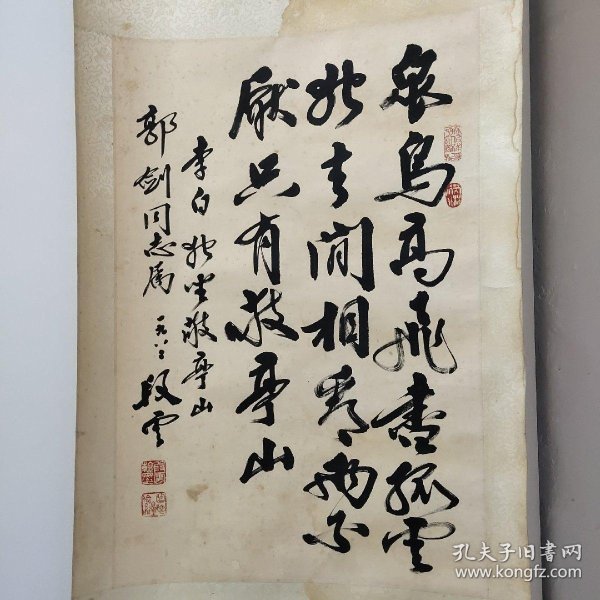 众鸟高飞尽孤云
独去闲相看两不
厌只有敬亭山
李白独坐敬亭山
郭剑同志属
一九八二
段云
孔夫子旧书网
www.kongfz.com